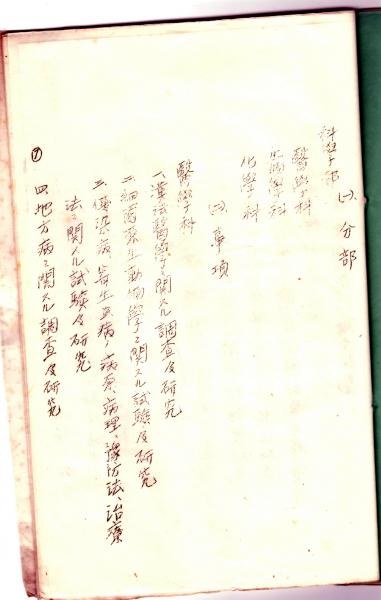 科學部
㈠、分部
醫學科
生物學科
化學科
㈡、事項
醫學科
一、漢法醫學ニ關スル調查及研究
二、細菌寄生動物學ニ關スル試驗及研究
三、傳染病、寄生虫病ノ病原、病理、豫防法、治療
法ニ關スル試驗及研究
四、地方病ニ關スル調查及研究
⑦